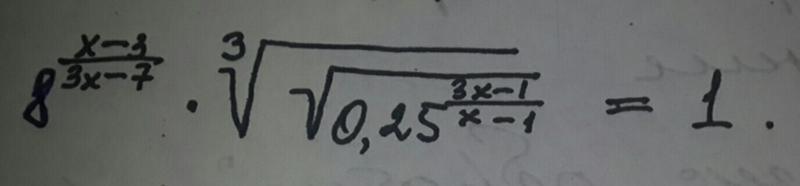 8^{\frac{x-3}{3x-7}} \cdot \sqrt[3]{\sqrt{0,25^{\frac{3x-1}{x-1}}}} = 1.